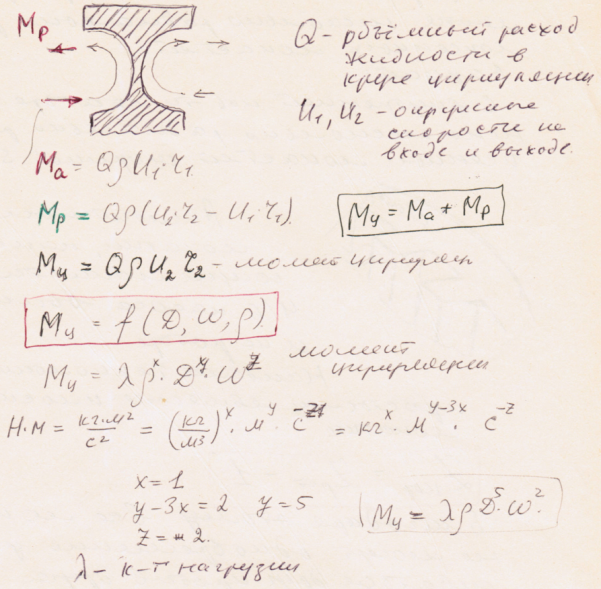 Mр
Q - объёмный расход
жидкости в
круге циркуляции
U₁, U₂ - окружные
скорости на
входе и выходе.
Mа = QρU₁·r₁
Mр = Qρ(U₂·r₂ - U₁·r₁).
Mц = Mа + Mр
Mц = QρU₂r₂ - момент циркуляции
Mц = f(D, ω, ρ)
Mц = λρˣ·Dʸ·ωᶻ
момент
циркуляции
Н·м = кг·м²/с² = (кг/м³)ˣ·мʸ·с⁻ᶻ = кгˣ·м^(y-3x)·с⁻ᶻ
x = 1
y - 3x = 2 y = 5
z = 2.
Mц = λρD⁵·ω².
λ - к-т нагрузки